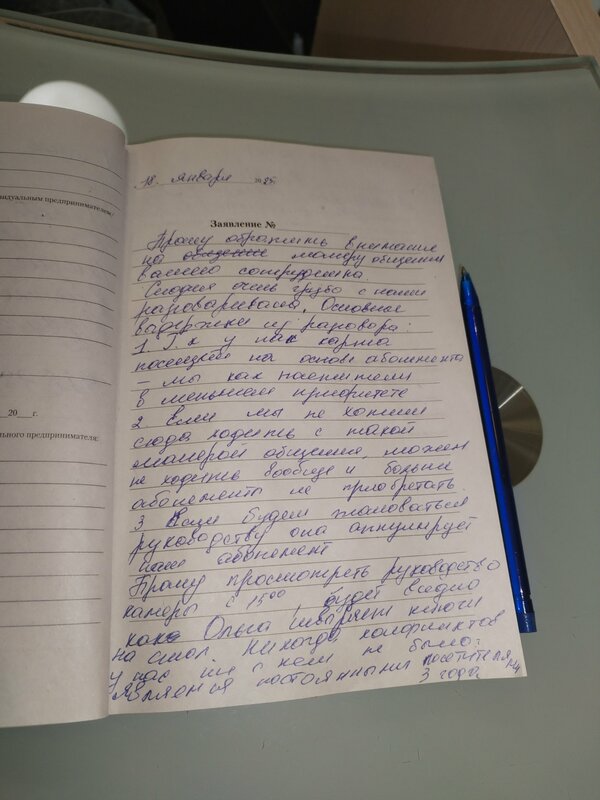 видуальным предпринимателем/
20___г.
льного предпринимателя:
18. января 2025г
Заявление №
Прошу обратить внимание
на манеру общения
вашего сотрудника.
Сегодня очень грубо с нами
разговаривала. Основные
выдержки из разговора:
1. Т.к у нас карта
посещений на основе абонемента
– мы как посетители
в меньшем приоритете
2. Если мы не хотим
сюда ходить с такой
манерой общения, можем
не ходить вообще и больше
абонементы не приобретать.
3 Если будем жаловаться
руководству она аннулирует
наш абонемент
Прошу просмотреть руководство
камеры с 15 00 будет видно
как Ольга швыряет ключи
на стол. Никогда конфликтов
у нас ни с кем не было.
Являемся постоянными посетителями
3 года